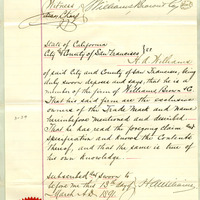 Witness Williams Brown & Co
State of California
City & County of San Francisco } ss
H. A. Williams
of said City and County of San Francisco, being
duly sworn deposes and says, that he is a
member of the firm of Williams Brown & Co
That his said firm are the exclusive
owners of the Trade Mark and name
hereinbefore mentioned and described
That he has read the foregoing claim and
specification and knows the Contents
thereof, and that the same is true of
his own knowledge
Subscribed & sworn to
before me this 13th day of
March A.D. 1890.
H A Williams